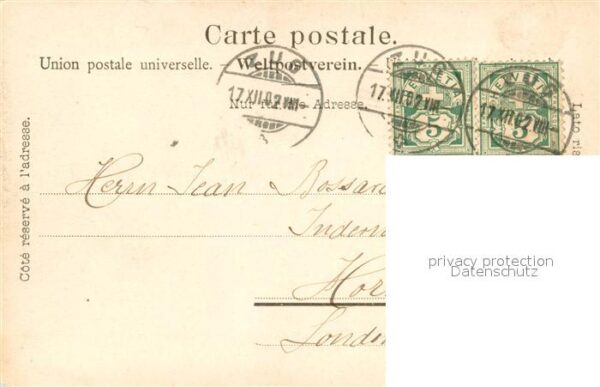 Carte postale.
Union postale universelle. – Weltpostverein.
Nur für die Adresse.
Côté réservé à l'adresse.
Lato ris
ZUG
17.XII.02.VIII
ZUG
17.XII.02.VIII
17.XII.02.VIII
HELVETIA
5
HELVETIA
5
Herrn Jean Bossar
Hor
London
privacy protection
Datenschutz